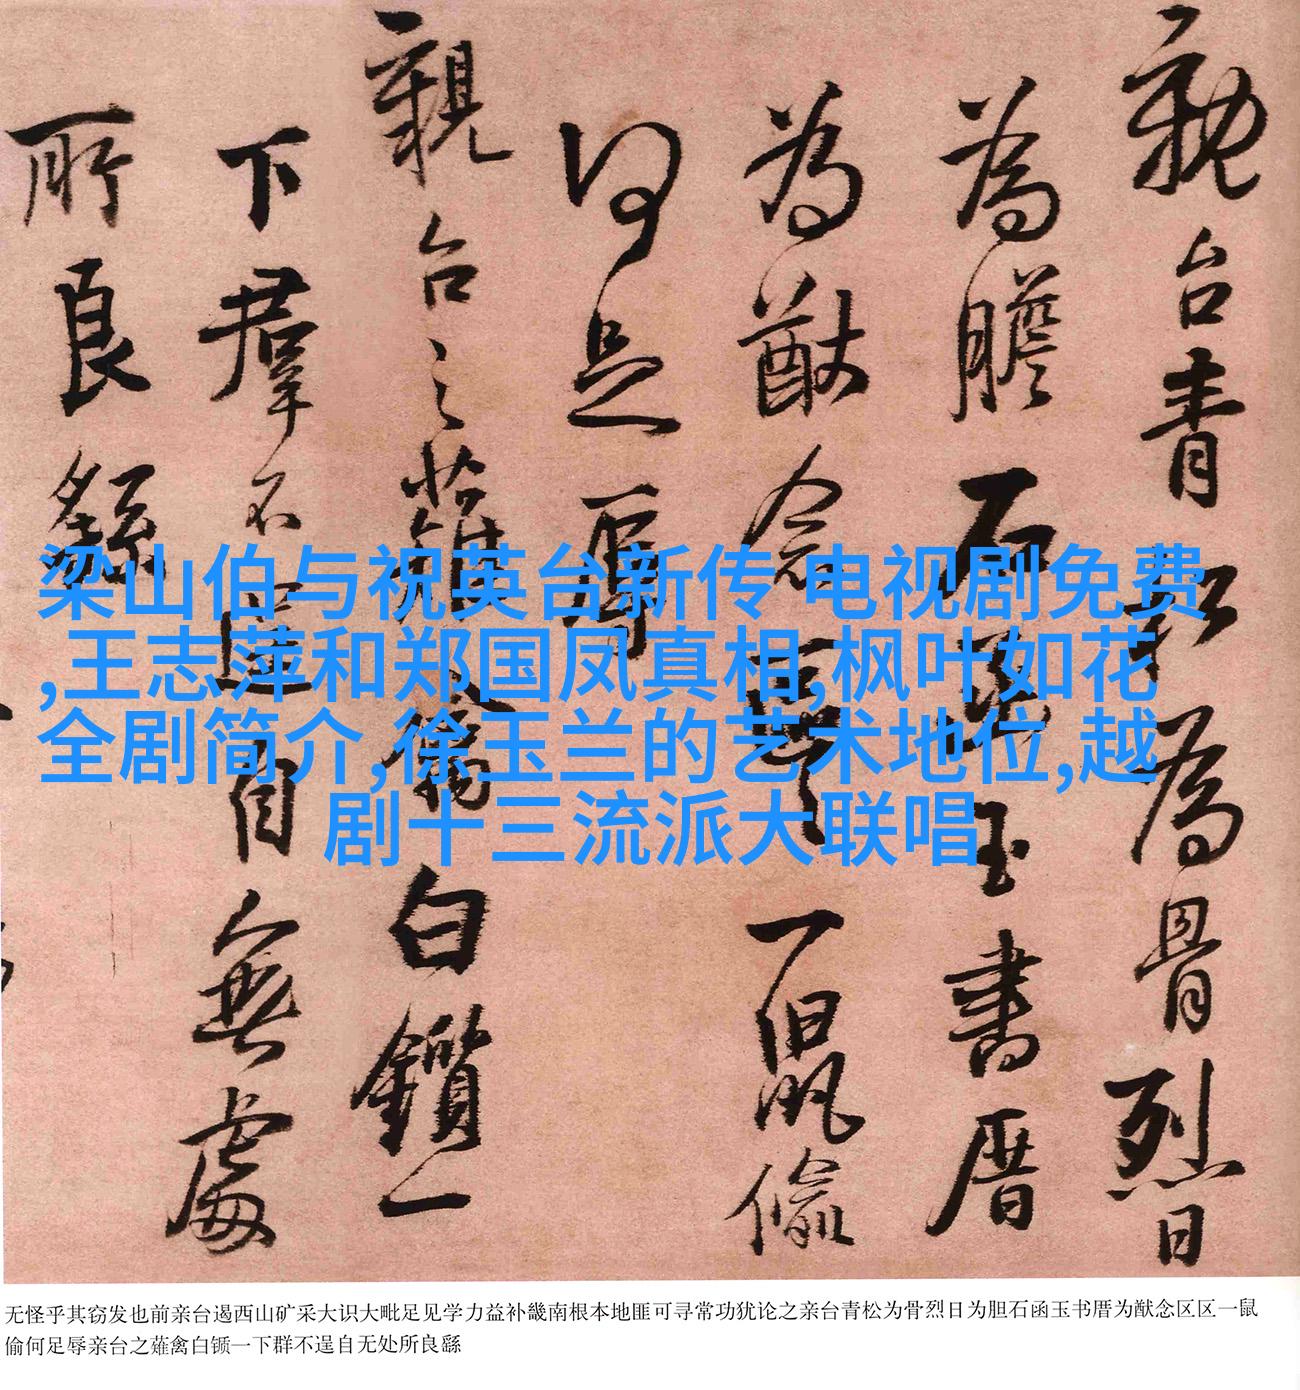 親台青松為骨烈日
為膽石函玉書厝
為猷念區區一鼠偷
何足辱
親台之薙禽白鑕一
下羣不逞自無處
所良繇
梁山伯与祝英台新传 电视剧免费
,王志萍和郑国凤真相,枫叶如花
全剧简介,徐玉兰的艺术地位,越
剧十三流派大联唱
无怪乎其窃发也前亲台遏西山矿采大识大毗足见学力益补畿南根本地匪可寻常功犹论之亲台青松为骨烈日为胆石函玉书厝为猷念区区一鼠
偷何足辱亲台之薙禽白锧一下群不逞自无处所良繇